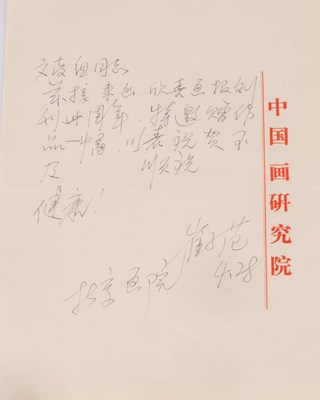 文 组同志
兹接来函,欣喜画报创
刊卅周年,特邀赠作
品一幅,以表祝贺
顺祝
健康!
北京画院 崔子范
4.28
中国画研究院